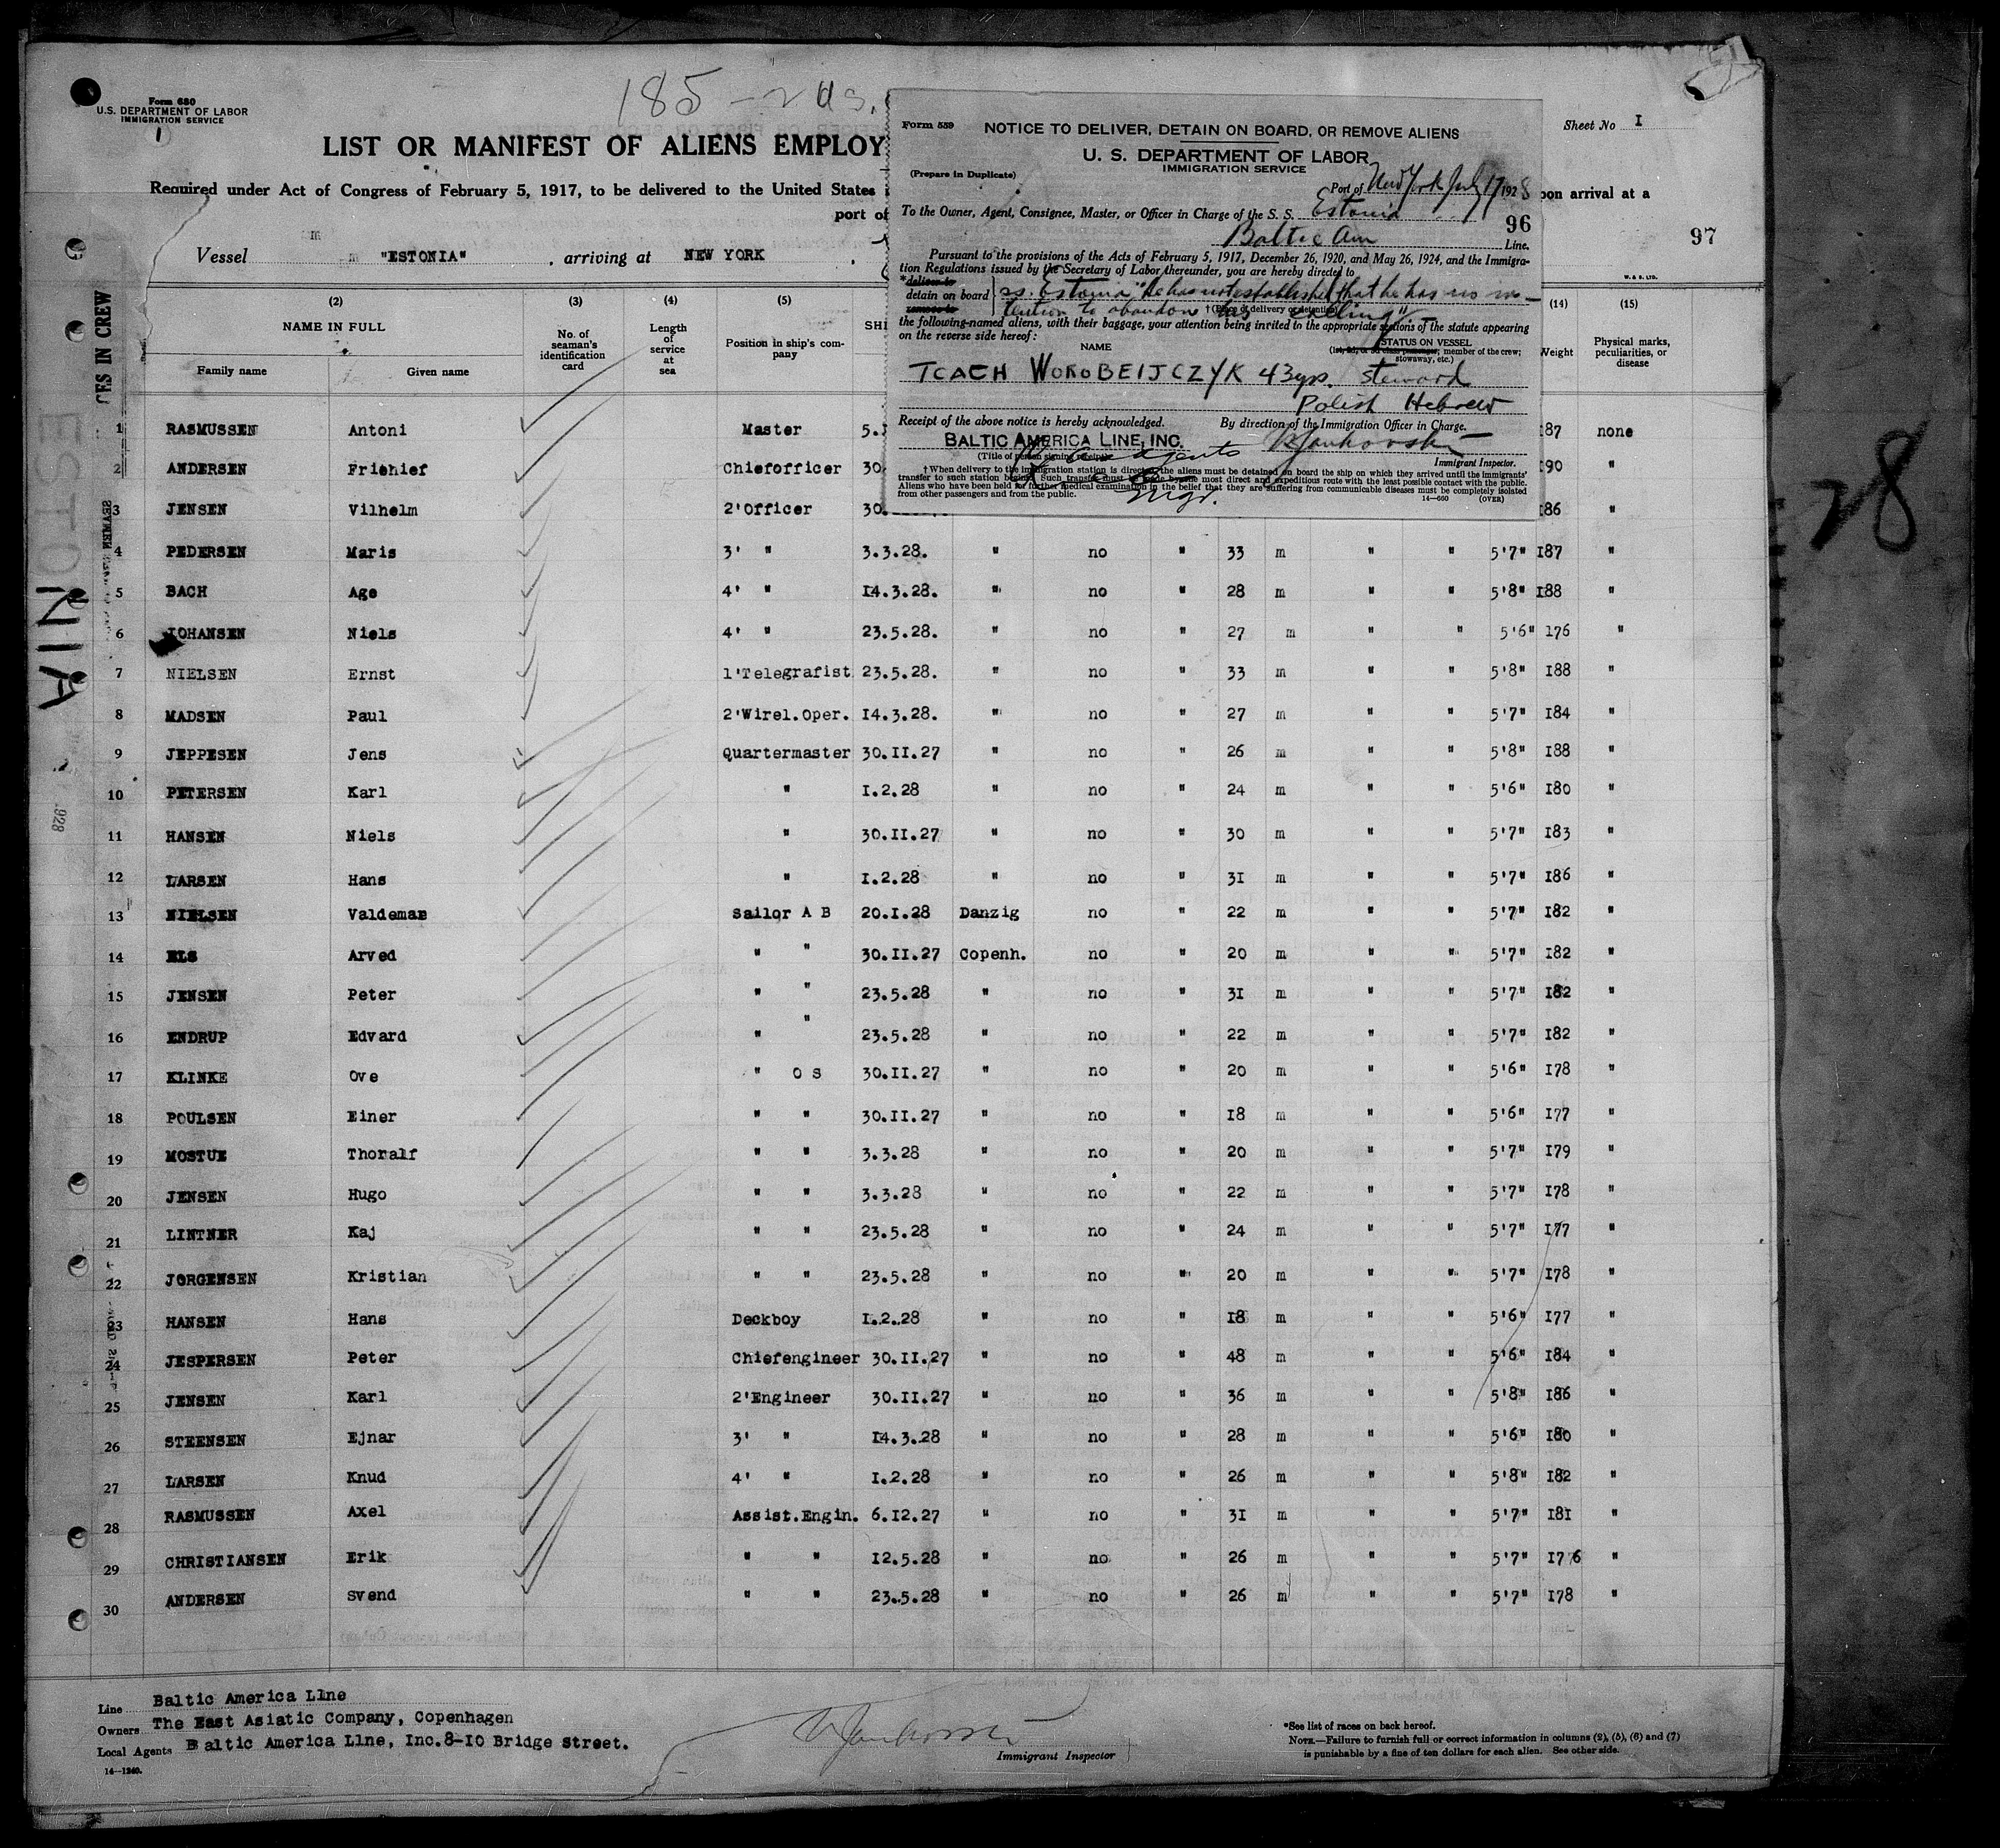 185 - 2 us.
Form 680
U.S. DEPARTMENT OF LABOR
IMMIGRATION SERVICE
1
LIST OR MANIFEST OF ALIENS EMPLOY
Required under Act of Congress of February 5, 1917, to be delivered to the United States
pon arrival at a
port of
Sheet No I
97
Vessel m "ESTONIA" , arriving at NEW YORK ,
W. & S. LTD.
Form 559
NOTICE TO DELIVER, DETAIN ON BOARD, OR REMOVE ALIENS
U. S. DEPARTMENT OF LABOR
IMMIGRATION SERVICE
(Prepare in Duplicate)
Port of New York July 17 1928
To the Owner, Agent, Consignee, Master, or Officer in Charge of the S. S. Estonia
96
Baltic Am Line.
Pursuant to the provisions of the Acts of February 5, 1917, December 26, 1920, and May 26, 1924, and the Immigra-
tion Regulations issued by the Secretary of Labor thereunder, you are hereby directed to
*deliver to
detain on board
remove to
ss. Estonia "He has not established that he has no in-
tention to abandon his calling"
† (Place of delivery or detention)
the following-named aliens, with their baggage, your attention being invited to the appropriate sections of the statute appearing
on the reverse side hereof:
NAME
STATUS ON VESSEL
(1st, 2d, or 3d class passenger; member of the crew;
stowaway, etc.)
TCACH WOROBEIJCZYK 43 yrs. steward
Polish Hebrew
Receipt of the above notice is hereby acknowledged. By direction of the Immigration Officer in Charge.
BALTIC AMERICA LINE, INC.
agents
(Title of person signing receipt)
Immigrant Inspector.
Mgr.
† When delivery to the immigration station is directed the aliens must be detained on board the ship on which they arrived until the immigrants'
transfer to such station begins. Such transfer must be made by the most direct and expeditious route with the least possible contact with the public.
Aliens who have been held for further medical examination in the belief that they are suffering from communicable diseases must be completely isolated
from other passengers and from the public. 14—660 (OVER)
(2) (3) (4) (5) (14) (15)
NAME IN FULL
Family name Given name
No. of seaman's identification card
Length of service at sea
Position in ship's com-
pany
SHI
Weight
Physical marks, peculiarities, or disease
1 RASMUSSEN Antoni Master 5. 187 none
2 ANDERSEN Friehief Chiefofficer 30. 190 "
3 JENSEN Vilhelm 2'Officer 30. 186 "
4 PEDERSEN Maris 3' " 3.3.28. " no " 33 m " " 5'7" I87 "
5 BACH Age 4' " I4.3.28. " no " 28 m " " 5'8" I88 "
6 JOHANSEN Niels 4' " 23.5.28. " no " 27 m " " 5'6" 176 "
7 NIELSEN Ernst 1'Telegrafist 23.5.28. " no " 33 m " " 5'8" I88 "
8 MADSEN Paul 2'Wirel.Oper. I4.3.28. " no " 27 m " " 5'7" I84 "
9 JEPPESEN Jens Quartermaster 30.II.27 " no " 26 m " " 5'8" I88 "
10 PETERSEN Karl " I.2.28 " no " 24 m " " 5'6" I80 "
11 HANSEN Niels " 30.II.27 " no " 30 m " " 5'7" I83 "
12 LARSEN Hans " I.2.28 " no " 3I m " " 5'7" I86 "
13 NIELSEN Valdemar Sailor A B 20.I.28 Danzig no " 22 m " " 5'7" I82 "
14 ELS Arved " " 30.II.27 Copenh. no " 20 m " " 5'7" I82 "
15 JENSEN Peter " " 23.5.28 " no " 3I m " " 5'7" I82 "
16 ENDRUP Edvard " " 23.5.28 " no " 22 m " " 5'7" I82 "
17 KLINKE Ove " O S 30.II.27 " no " 20 m " " 5'6" I78 "
18 POULSEN Einer " " 30.II.27 " no " I8 m " " 5'6" I77 "
19 MOSTUE Thoralf " " 3.3.28 " no " 20 m " " 5'7" I79 "
20 JENSEN Hugo " " 3.3.28 " no " 22 m " " 5'7" I78 "
21 LINTNER Kaj " " 23.5.28 " no " 24 m " " 5'7" I77 "
22 JØRGENSEN Kristian " " 23.5.28 " no " 20 m " " 5'7" I78 "
23 HANSEN Hans Deckboy I.2.28 " no " I8 m " " 5'6" I77 "
24 JESPERSEN Peter Chiefengineer 30.II.27 " no " 48 m " " 5'6" I84 "
25 JENSEN Karl 2'Engineer 30.II.27 " no " 36 m " " 5'8" I86 "
26 STEENSEN Ejnar 3' " I4.3.28 " no " 28 m " " 5'6" I80 "
27 LARSEN Knud 4' " I.2.28 " no " 26 m " " 5'8" I82 "
28 RASMUSSEN Axel Assist.Engin. 6.I2.27 " no " 3I m " " 5'7" I8I "
29 CHRISTIANSEN Erik " " I2.5.28 " no " 26 m " " 5'7" I776 "
30 ANDERSEN Svend " " 23.5.28 " no " 26 m " " 5'7" I78 "
Line Baltic America Line
Owners The East Asiatic Company, Copenhagen
Local Agents Baltic America Line, Inc.8-I0 Bridge street.
14—1240.
Immigrant Inspector
*See list of races on back hereof.
NOTE.—Failure to furnish full or correct information in columns (2), (5), (6) and (7)
is punishable by a fine of ten dollars for each alien. See other side.
CES IN CREW
ESTONIA
28